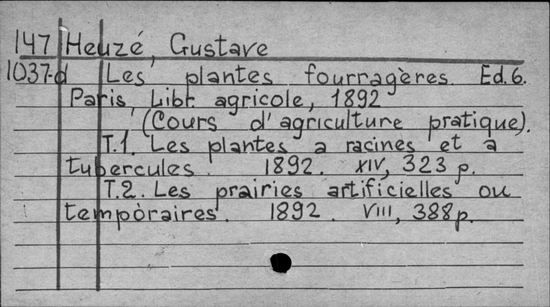 147 Heuzé, Gustave
1037-d Les plantes fourragères. Ed. 6.
Paris, Libr. agricole, 1892
(Cours d'agriculture pratique).
T.1. Les plantes a racines et a
tubercules. 1892. XIV, 323 p.
T.2. Les prairies artificielles ou
tempòraires. 1892. VIII, 388 p.